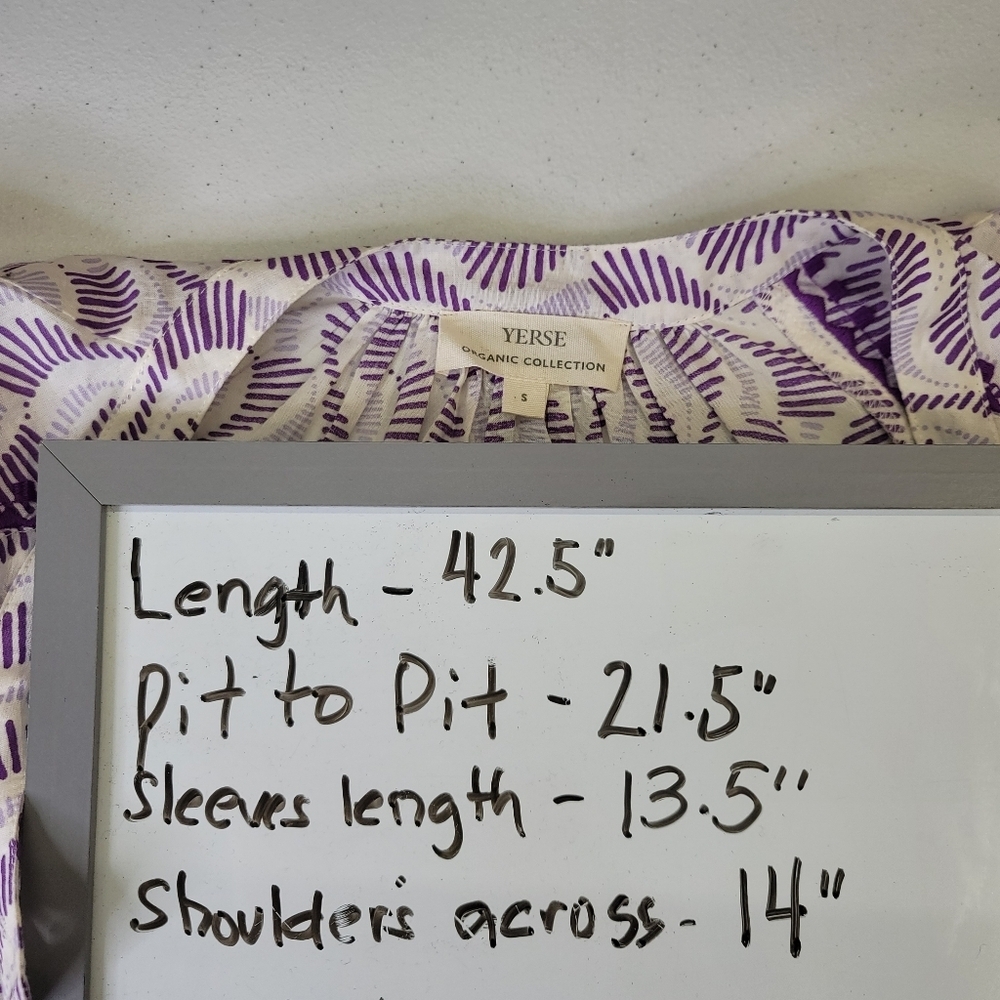 YERSE
ORGANIC COLLECTION
S
Length - 42.5"
Pit to Pit - 21.5"
Sleeves length - 13.5"
Shoulders across - 14"